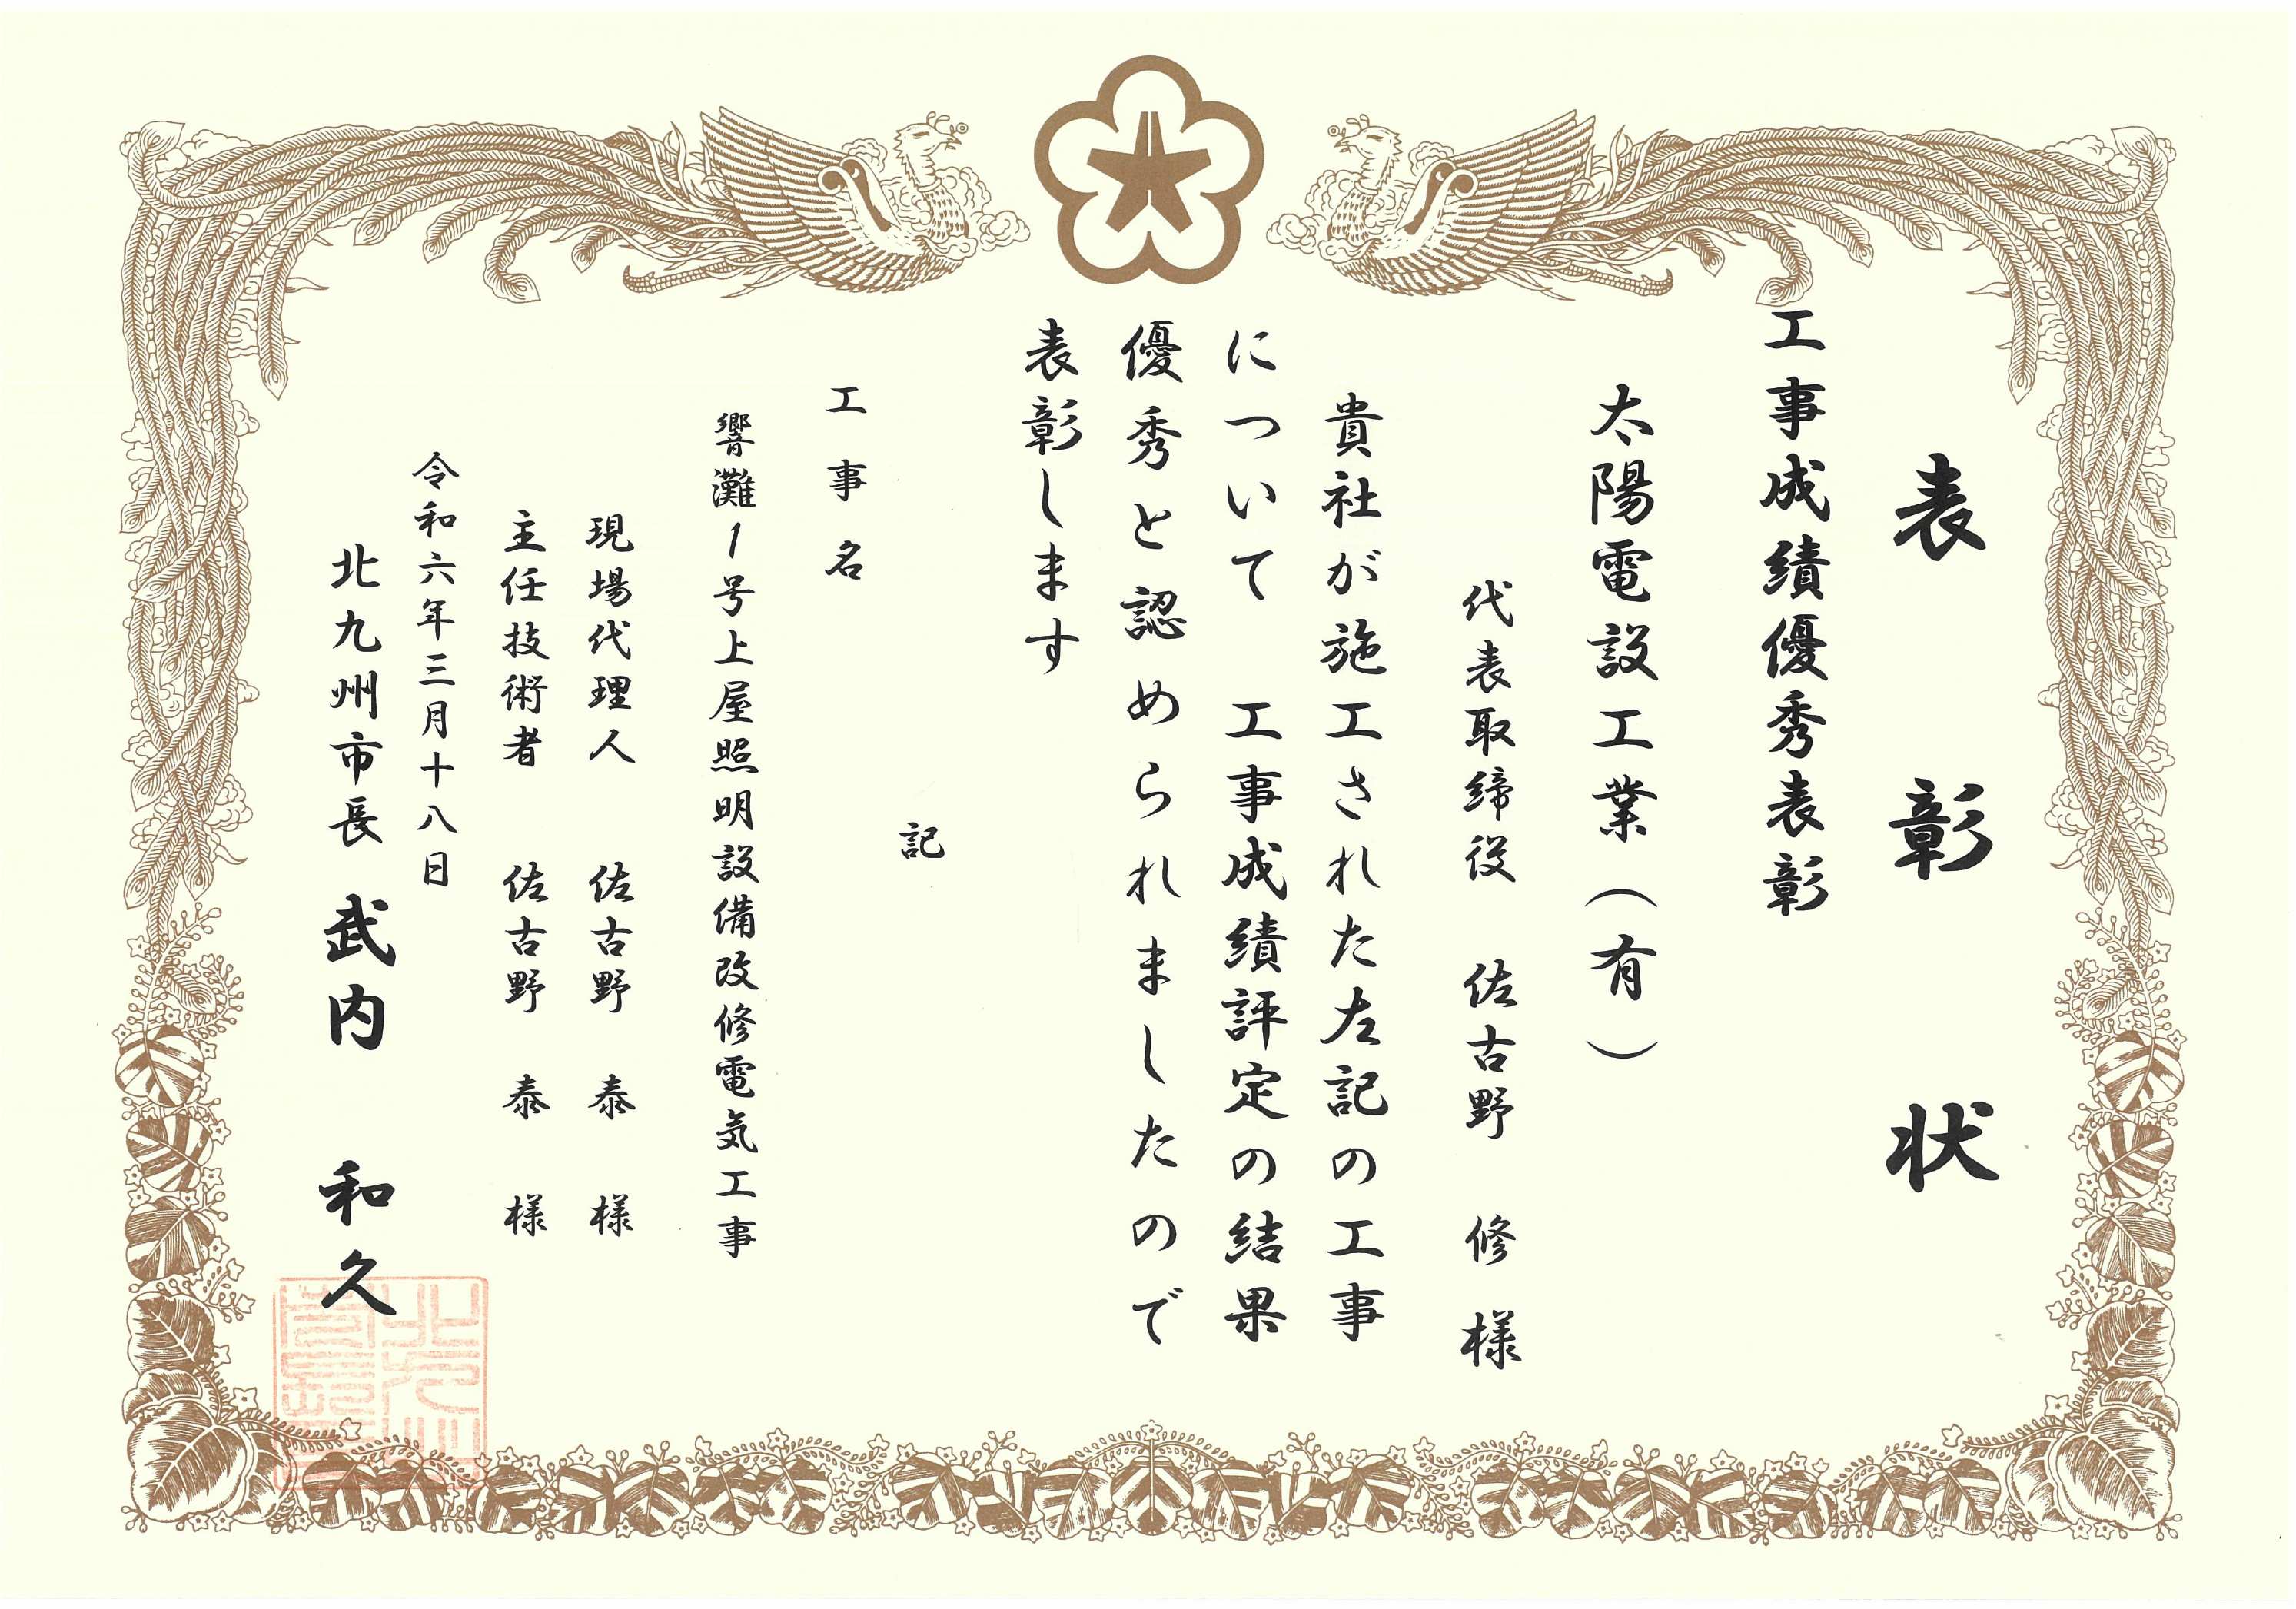 表彰状
工事成績優秀表彰
太陽電設工業（有）
代表取締役 佐古野 修 様
貴社が施工された左記の工事
について 工事成績評定の結果
優秀と認められましたので
表彰します
記
工事名
響灘1号上屋照明設備改修電気工事
現場代理人 佐古野 泰 様
主任技術者 佐古野 泰 様
令和六年三月十八日
北九州市長 武内 和久